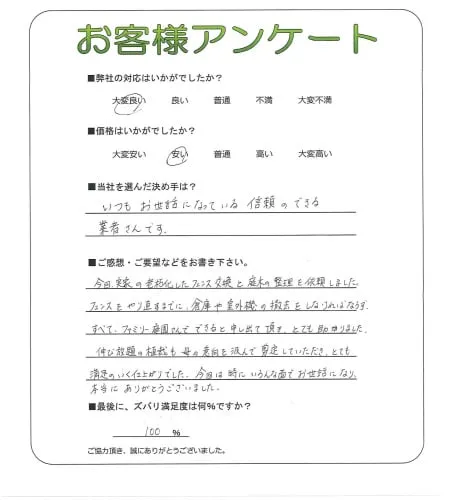 お客様アンケート
■弊社の対応はいかがでしたか？
大変良い 良い 普通 不満 大変不満
■価格はいかがでしたか？
大変安い 安い 普通 高い 大変高い
■当社を選んだ決め手は？
いつも お世話になっている 信頼のできる
業者さんです。
■ご感想・ご要望などをお書き下さい。
今回、実家の老朽化したフェンス交換と庭木の整理を依頼しました。
フェンスをやり直すまでに、倉庫や室外機の撤去をしなければならず、
すべて、ファミリー庭園さんでできると申し出て頂き、とても助かりました。
伸び放題の植栽も母の意向を汲んで剪定していただき、とても
満足のいく仕上がりでした。今回は特にいろんな面でお世話になり、
本当にありがとうございました。
■最後に、ズバリ満足度は何％ですか？
100 ％
ご協力頂き、誠にありがとうございました。